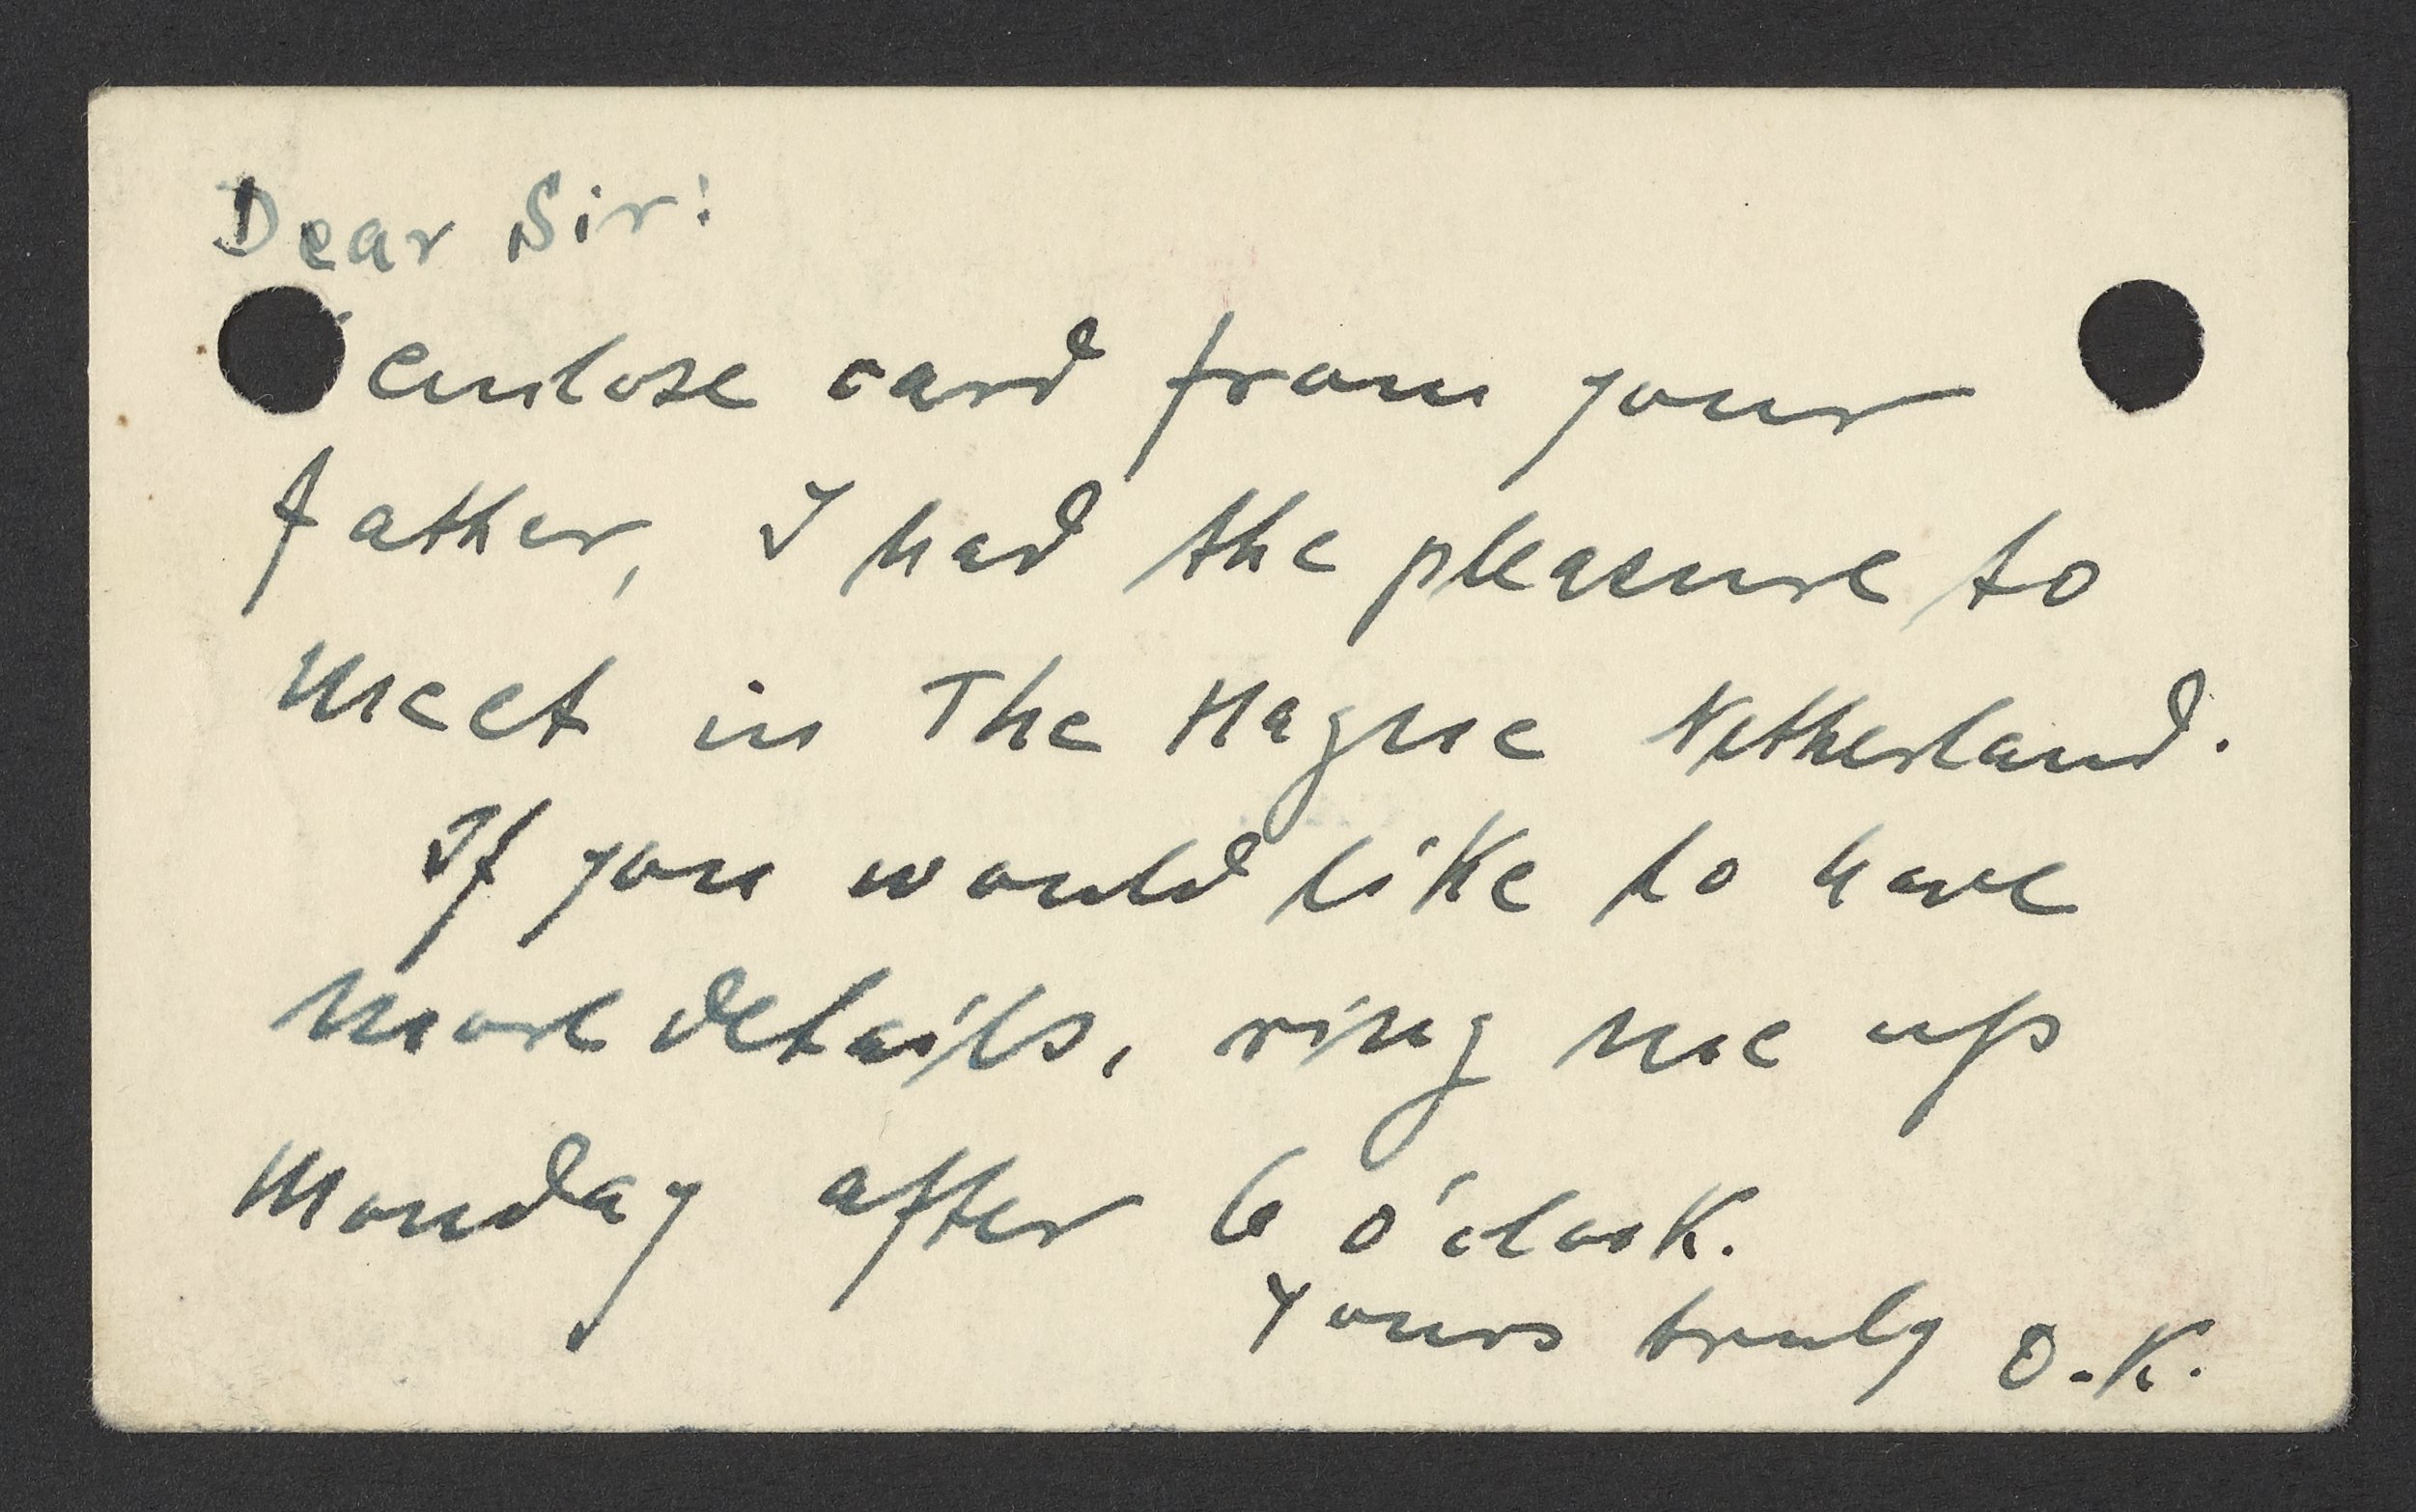 Dear Sir!
enclose card from your
father, I had the pleasure to
meet in The Hague Netherland.
If you would like to have
more details, ring me up
Monday after 6 o'clock.
Yours truly O.K.